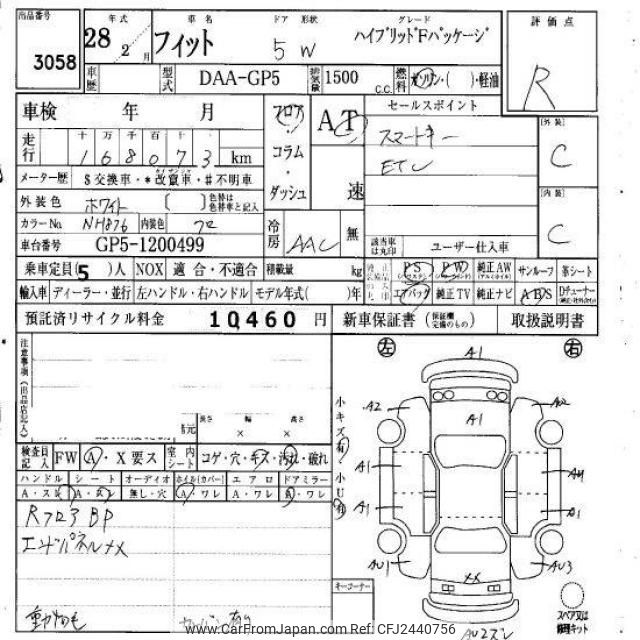 出品番号 3058
年式 28 2 月
車名 フィット
ドア 形状 5 W
グレード ハイブリッドFパッケージ
評価点 R
車歴
型式 DAA-GP5
排気量 1500 c.c.
燃料 ガソリン・( )・軽油
車検 年 月
フロア・コラム・ダッシュ
AT 速
セールスポイント
スマートキー
ETC
[外装] C
[内装] C
走行 十 万 千 百 十
1 6 8 0 7 3 km
メーター歴 $交換車・*改竄車・#不明車
外装色 ホワイト [ ] 色替は色替車と記入
カラーNo. NH876 内装色 クロ
冷房 AAC 無
車台番号 GP5-1200499
該当車は丸印 ユーザー仕入車
乗車定員(5)人 NOX 適合・不適合 積載量 kg
PS PW 純正AW サンルーフ 革シート
輸入車 ディーラー・並行 左ハンドル・右ハンドル モデル年式( )年
エアバッグ 純正TV 純正ナビ ABS Dチューナー
預託済リサイクル料金 10,460 円
新車保証書 (保証欄完備のもの) 取扱説明書
注意事項(出品店記入)
長さ 幅 高さ
× ×
検査員記入 FW A・X要ス 室内シート コゲ・穴・キズ・汚れ・破れ
ハンドル シート オーディオ ホイル(カバー) エアロ ドアミラー
A・スレ A・ 無し・穴 A・ワレ A・ワレ A・ワレ
Rフロア BP
エンドパネルXX
小キズ有・小U有
左 右
A1
A2 A1 A2
A1
A1 A1
AU1 XX AU3
キーコーナー
スペア又は修理キット
www.CarFromJapan.com Ref: CFJ2440756